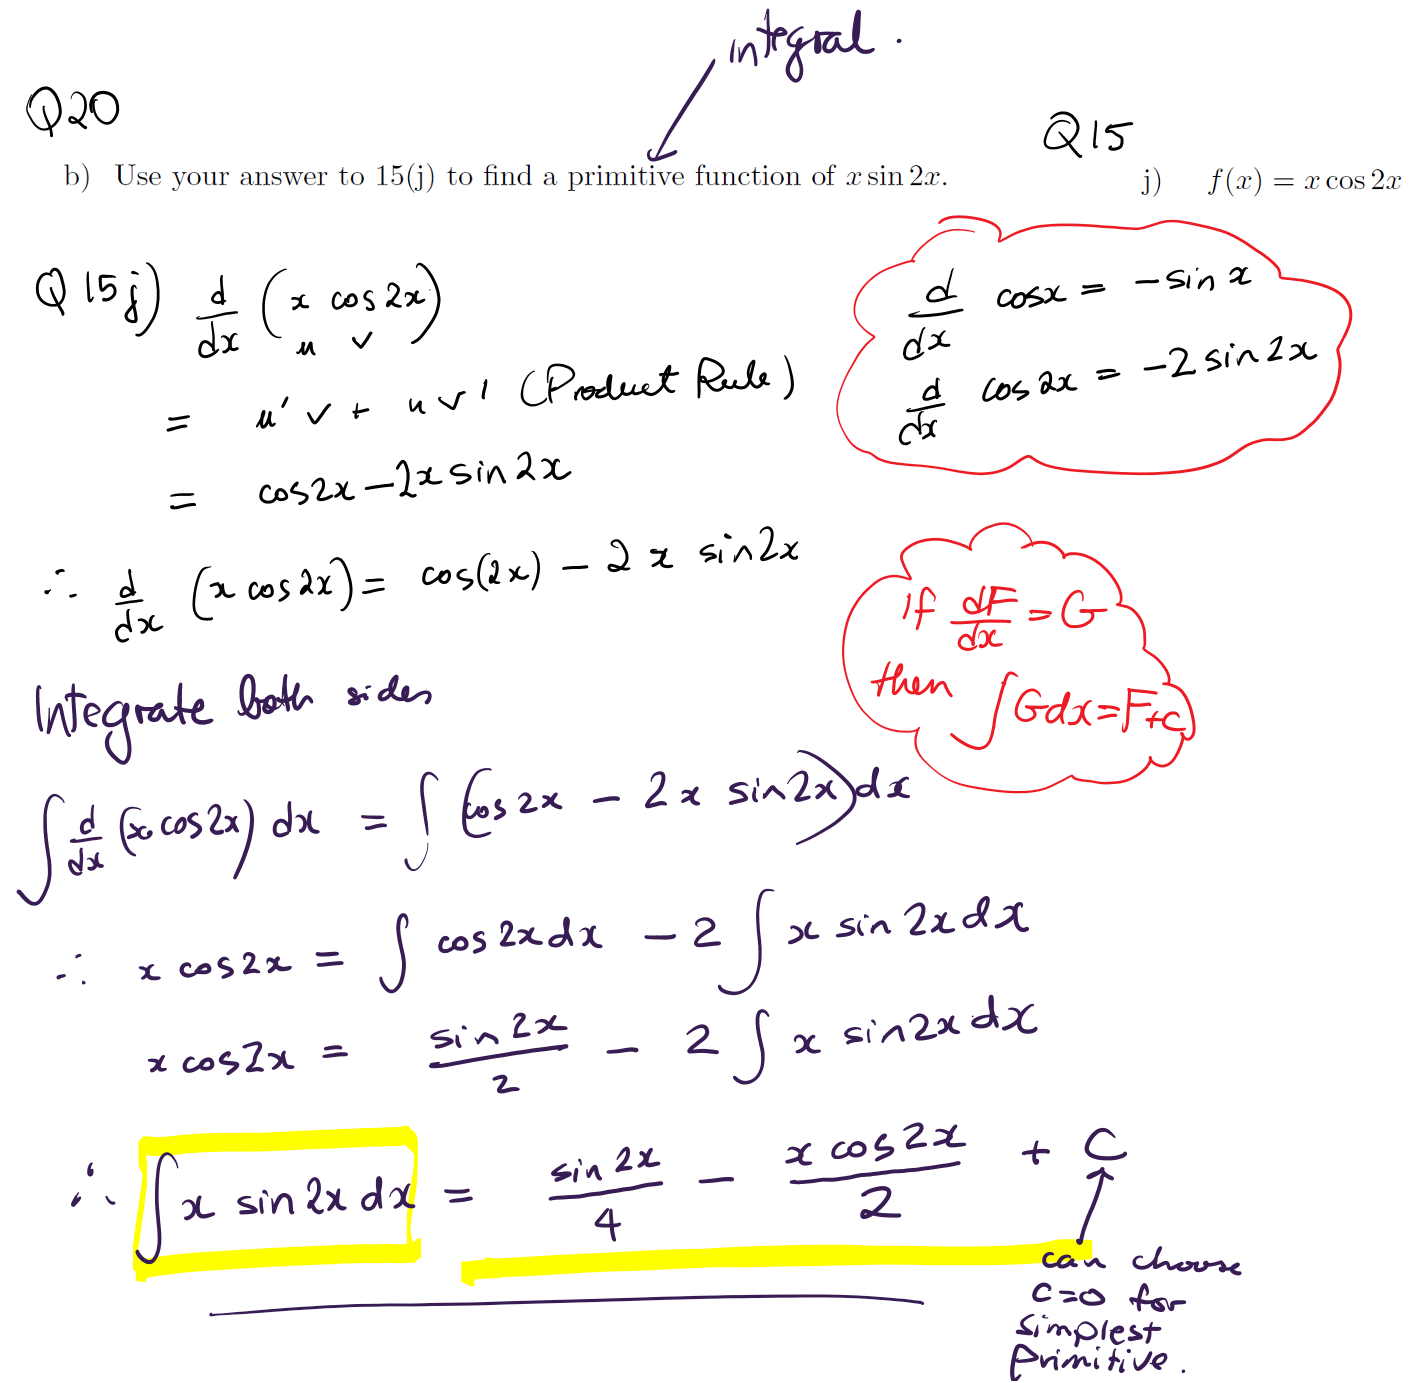 integral.
Q20
Q15
b) Use your answer to 15(j) to find a primitive function of x sin 2x.
j) f(x) = x cos 2x
Q 15j) d/dx (x cos 2x)
u v
= u'v + uv' (Product Rule)
= cos2x − 2x sin 2x
∴ d/dx (x cos 2x) = cos(2x) − 2 x sin2x
d/dx cosx = −sin x
d/dx cos 2x = −2 sin 2x
If dF/dx = G
then ∫Gdx = F+c
Integrate both sides
∫ d/dx (x cos 2x) dx = ∫ (cos 2x − 2x sin2x) dx
∴ x cos2x = ∫ cos 2x dx − 2 ∫ x sin 2x dx
x cos2x = sin 2x/2 − 2 ∫ x sin2x dx
∴ ∫ x sin 2x dx = sin 2x/4 − x cos 2x/2 + C
can choose
C=0 for
simplest
primitive.